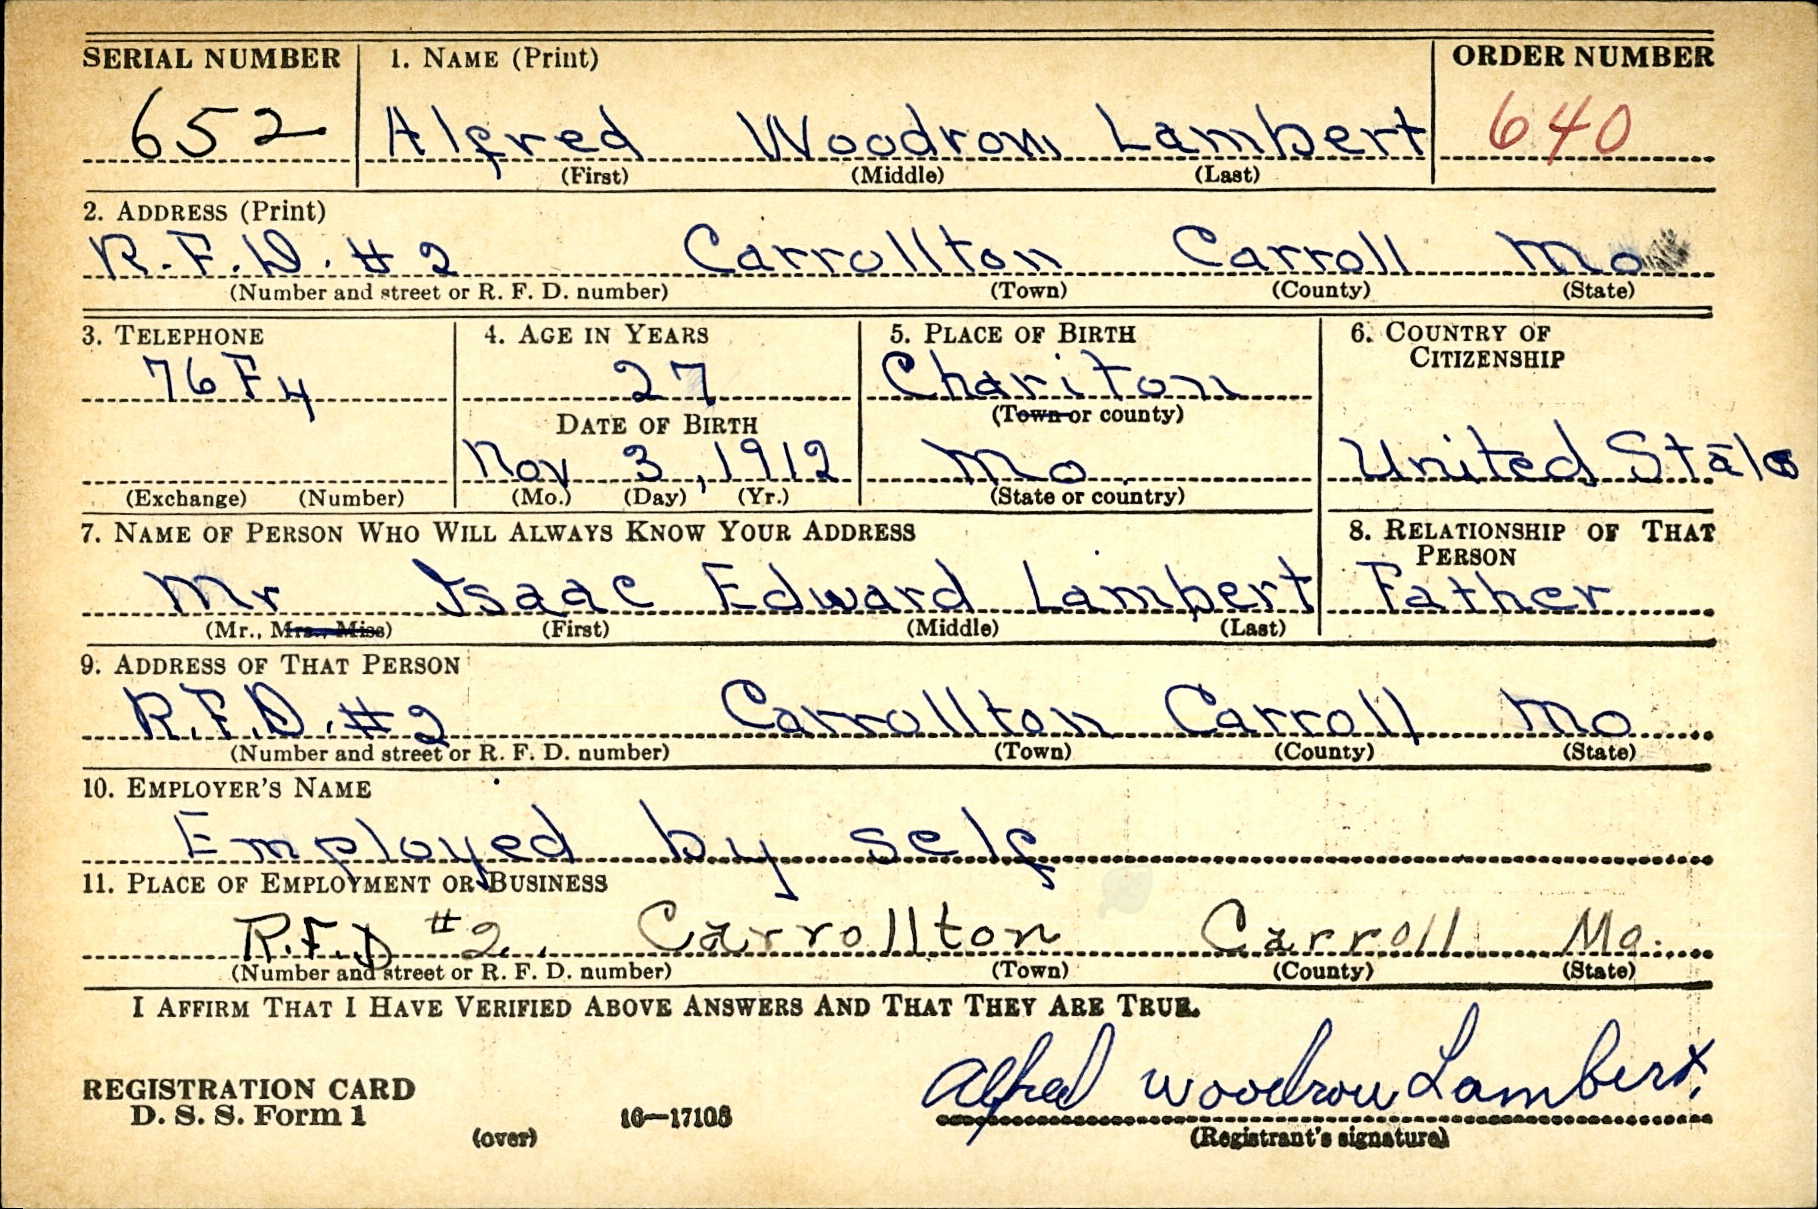 SERIAL NUMBER 1. NAME (Print) ORDER NUMBER
652 Alfred Woodrow Lambert 640
(First) (Middle) (Last)
2. ADDRESS (Print)
R.F.D. #2 Carrollton Carroll Mo
(Number and street or R. F. D. number) (Town) (County) (State)
3. TELEPHONE 4. AGE IN YEARS 5. PLACE OF BIRTH 6. COUNTRY OF
CITIZENSHIP
76F4 27 Chariton
DATE OF BIRTH (Town or county)
Nov 3, 1912 Mo United States
(Exchange) (Number) (Mo.) (Day) (Yr.) (State or country)
7. NAME OF PERSON WHO WILL ALWAYS KNOW YOUR ADDRESS 8. RELATIONSHIP OF THAT
PERSON
Mr Isaac Edward Lambert Father
(Mr., Mrs., Miss) (First) (Middle) (Last)
9. ADDRESS OF THAT PERSON
R.F.D. #2 Carrollton Carroll Mo
(Number and street or R. F. D. number) (Town) (County) (State)
10. EMPLOYER'S NAME
Employed by self
11. PLACE OF EMPLOYMENT OR BUSINESS
R.F.D #2. Carrollton Carroll Mo.
(Number and street or R. F. D. number) (Town) (County) (State)
I AFFIRM THAT I HAVE VERIFIED ABOVE ANSWERS AND THAT THEY ARE TRUE.
Alfred Woodrow Lambert.
REGISTRATION CARD
D. S. S. Form 1 16—17108
(over) (Registrant's signature)